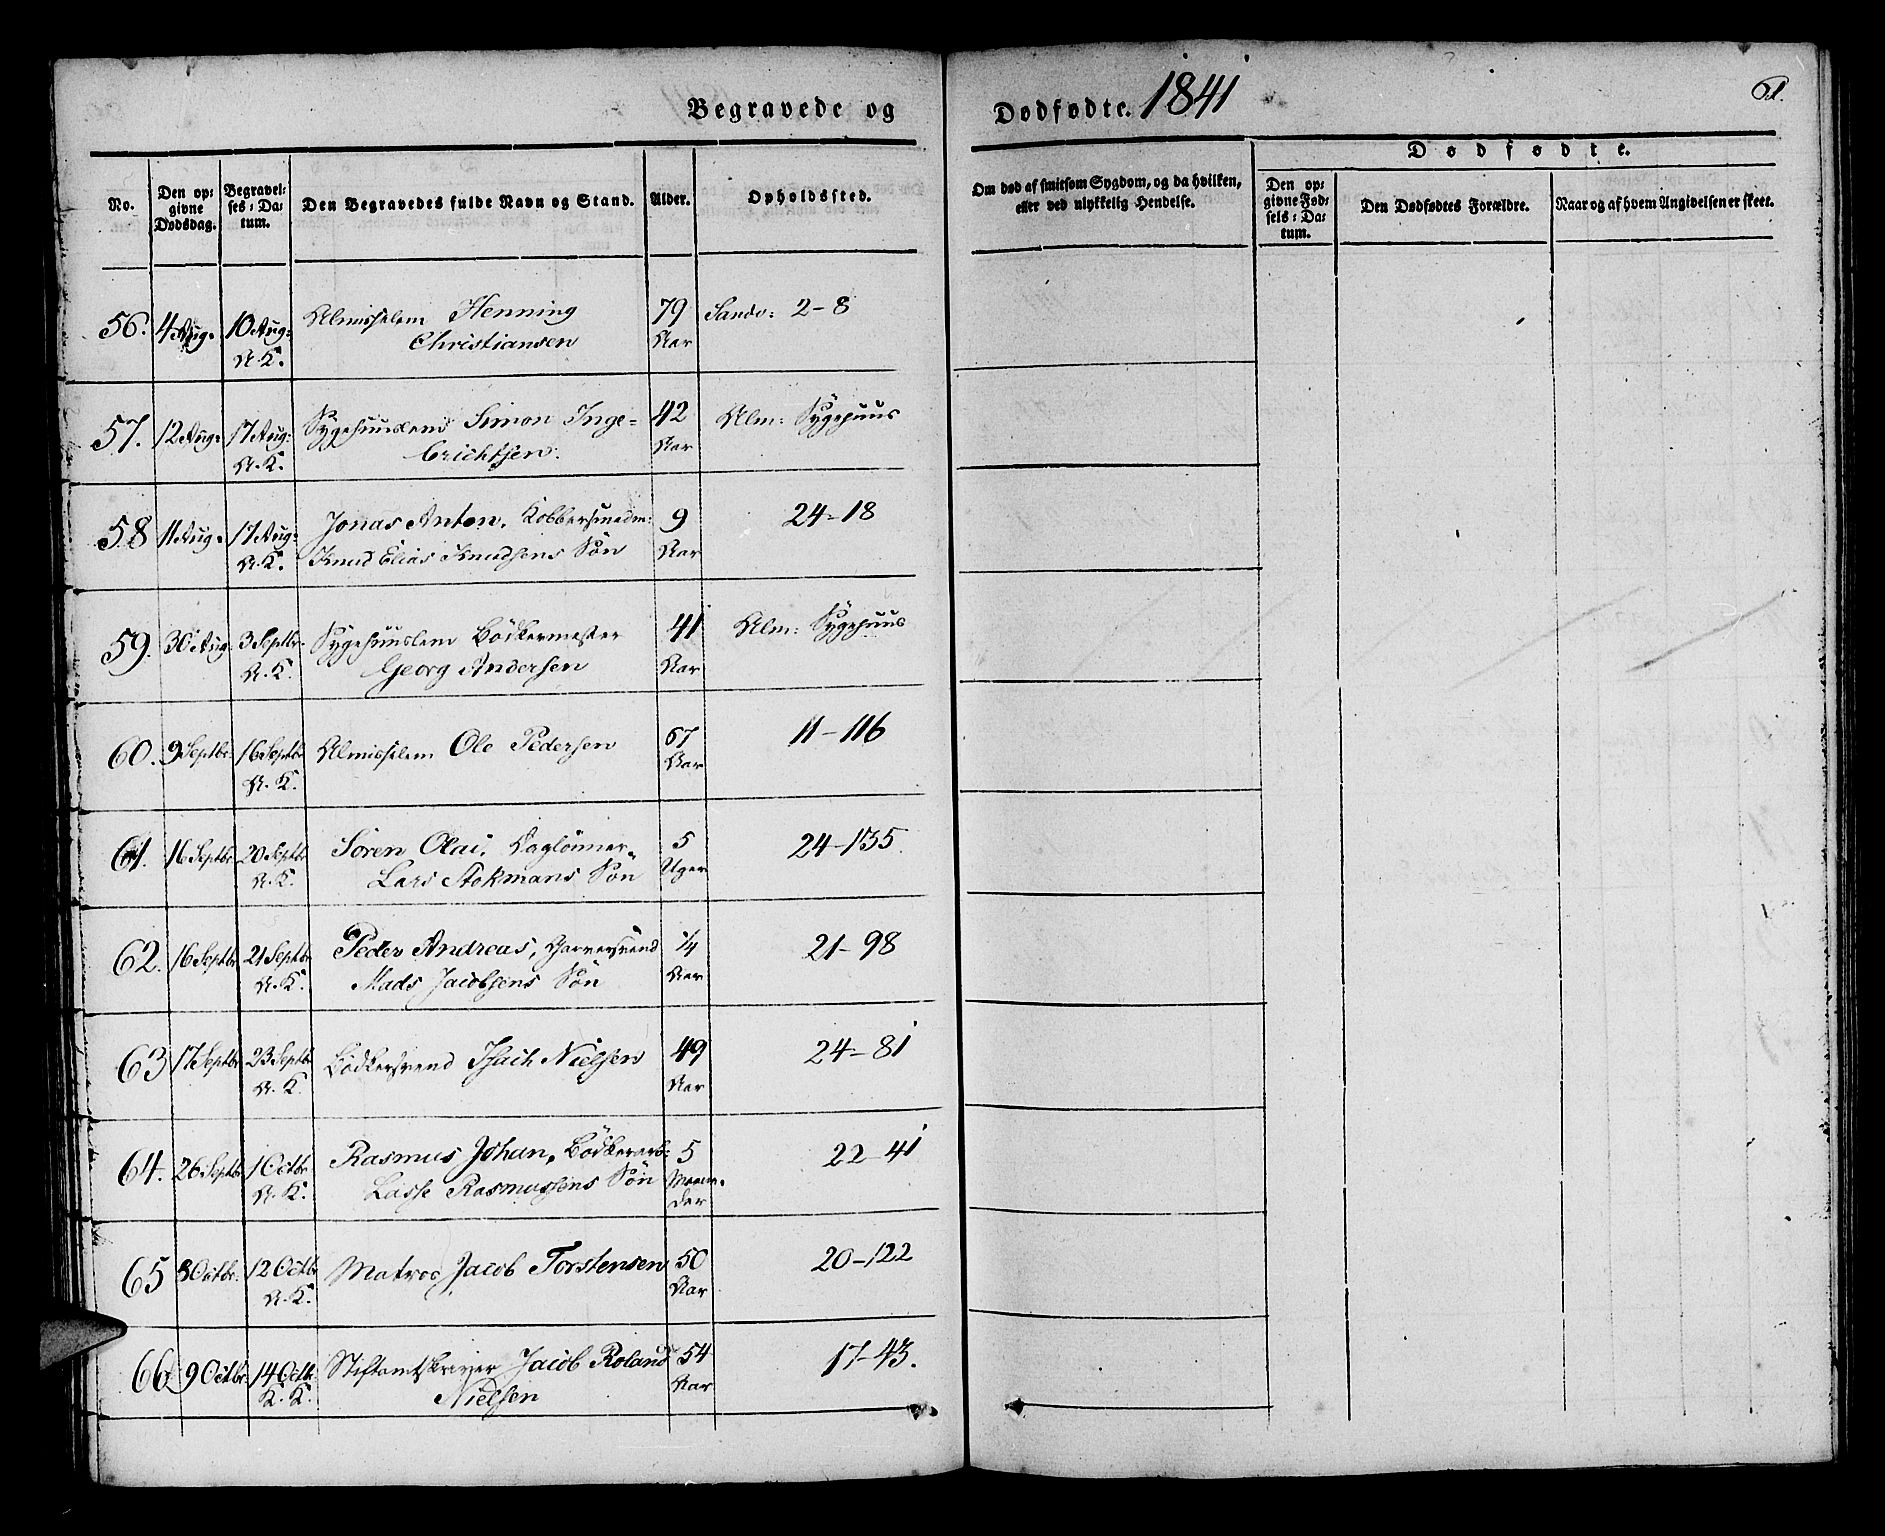 Begravede og Dødfødte. 1841
61.
No.
Den op-
givne
Dødsdag.
Begravel-
ses-Da-
tum.
Den Begravedes fulde Navn og Stand.
Alder.
Opholdssted.
Om død af smitsom Sygdom, og da hvilken,
eller ved ulykkelig Hendelse.
Dødfødte.
Den op-
givne Fød-
sels-Da-
tum.
Den Dødfødtes Forældre.
Naar og af hvem Angivelsen er skeet.
56. 4 Aug: 10 Aug: Almisselem Henning 79 Sandv: 2-8
N.K. Christiansen Aar
57. 12 Aug: 17 Aug: Sygehuuslem Simon Inge- 42 Alm: Sygehuus
N.K. brichtsen. Aar
58 11 Aug: 17 Aug: Jonas Anton, Kobbersmedm: 9 24-18
N.K. Knud Elias Knudsens Søn Aar
59. 30 Aug: 3 Septbr. Sygehuuslem Bødkermester 41 Alm: Sygehuus
N.K. Georg Andersen Aar
60. 9 Septbr. 16 Septbr Almisselem Ole Pedersen 67 11-116
N.K. Aar
61. 16 Septbr 20 Septbr Søren Olai, Daglønner 5 24-135.
N.K. Lars Stokmans Søn Uger
62. 16 Septbr 21 Septbr Peder Andreas, Garversvend 1/4 21-98
N.K. Mads Jacobsens Søn Aar
63 17 Septbr 23 Septbr Bødkersvend Isach Nielsen 49 24-81
N.K. Aar
64. 26 Septbr 1 Octbr Rasmus Johan, Bødkerarb: 5 22-41
N.K. Lasse Rasmussens Søn Maane-
der
65 8 Octbr. 12 Octbr Matros Jacob Torstensen 50 20-122
N.K. Aar
66 9 Octbr 14 Octbr Stiftamtskriver Jacob Roland 54 17-43.
K.K. Nielsen Aar